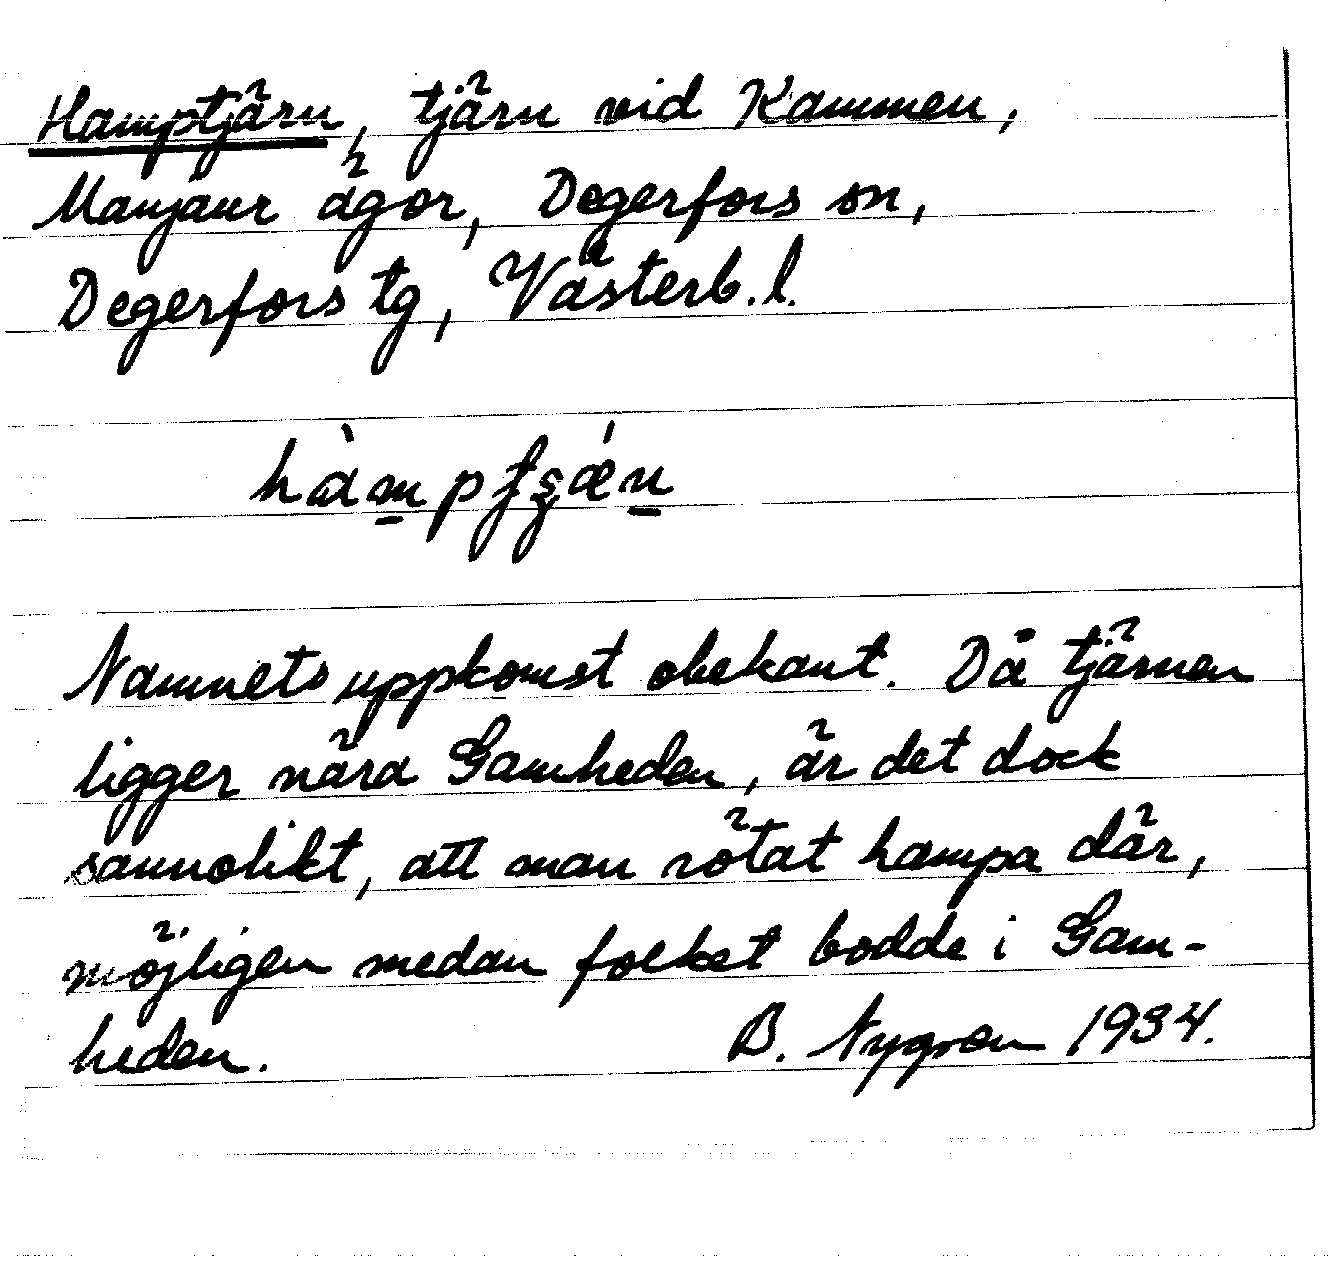 Hamptjärn, tjärn vid Kammen,
Manjaur ägor, Degerfors sn,
Degerfors tg, Västerb. l.
Namnets uppkomst obekant. Då tjärnen
ligger nära Gamheden, är det dock
sannolikt, att man rötat hampa där,
möjligen medan folket bodde i Gam-
heden. B. Nygren 1934.